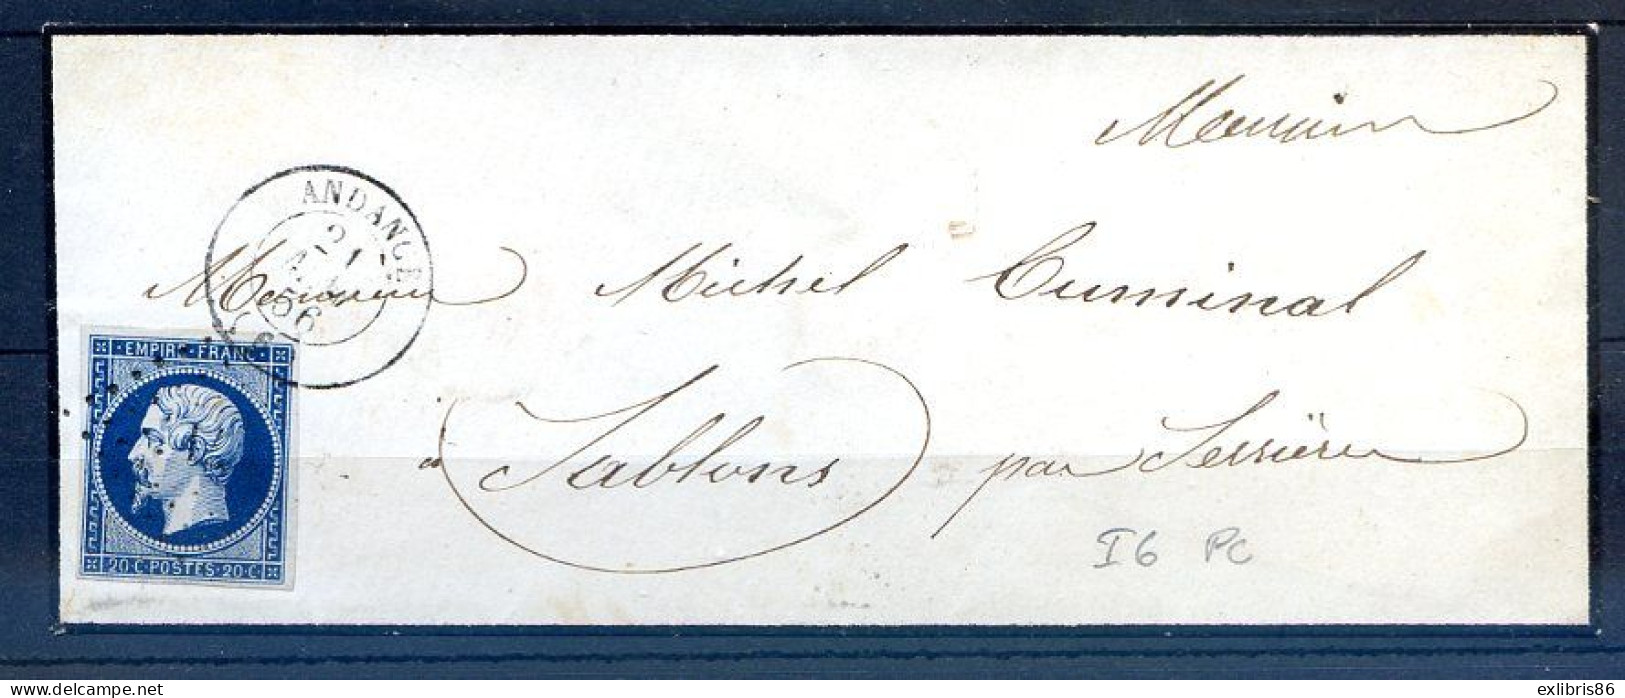 Monsieur
ANDANCE
21
56
(6)
Monsieur Michel Cuminal
EMPIRE FRANC
à Sablons par Serrières
20·C·POSTES·20·C
I6 PC
delcampe.net
exlibris86